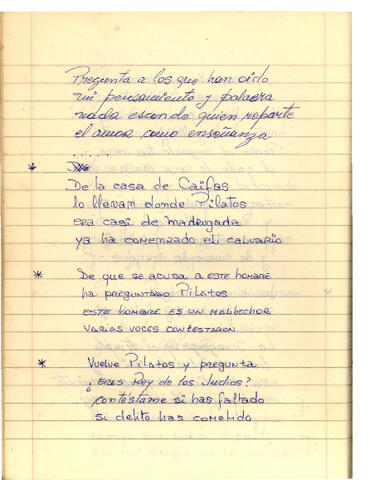 Pregunta a los que han oido
mi pensamiento y palabra
nada esconde quien reparte
el amor como enseñanza
......
*
De la casa de Caifas
lo llevan donde Pilatos
era casi de madrugada
ya ha comenzado el calvario
* De que se acusa a ESTE HOMBRE
ha preguntado Pilatos
ESTE HOMBRE ES UN MALHECHOR
VARIAS VOCES CONTESTARON
* Vuelve Pilatos y pregunta
¿ERES Rey de los Judios?
contéstame si has faltado
si delito has cometido